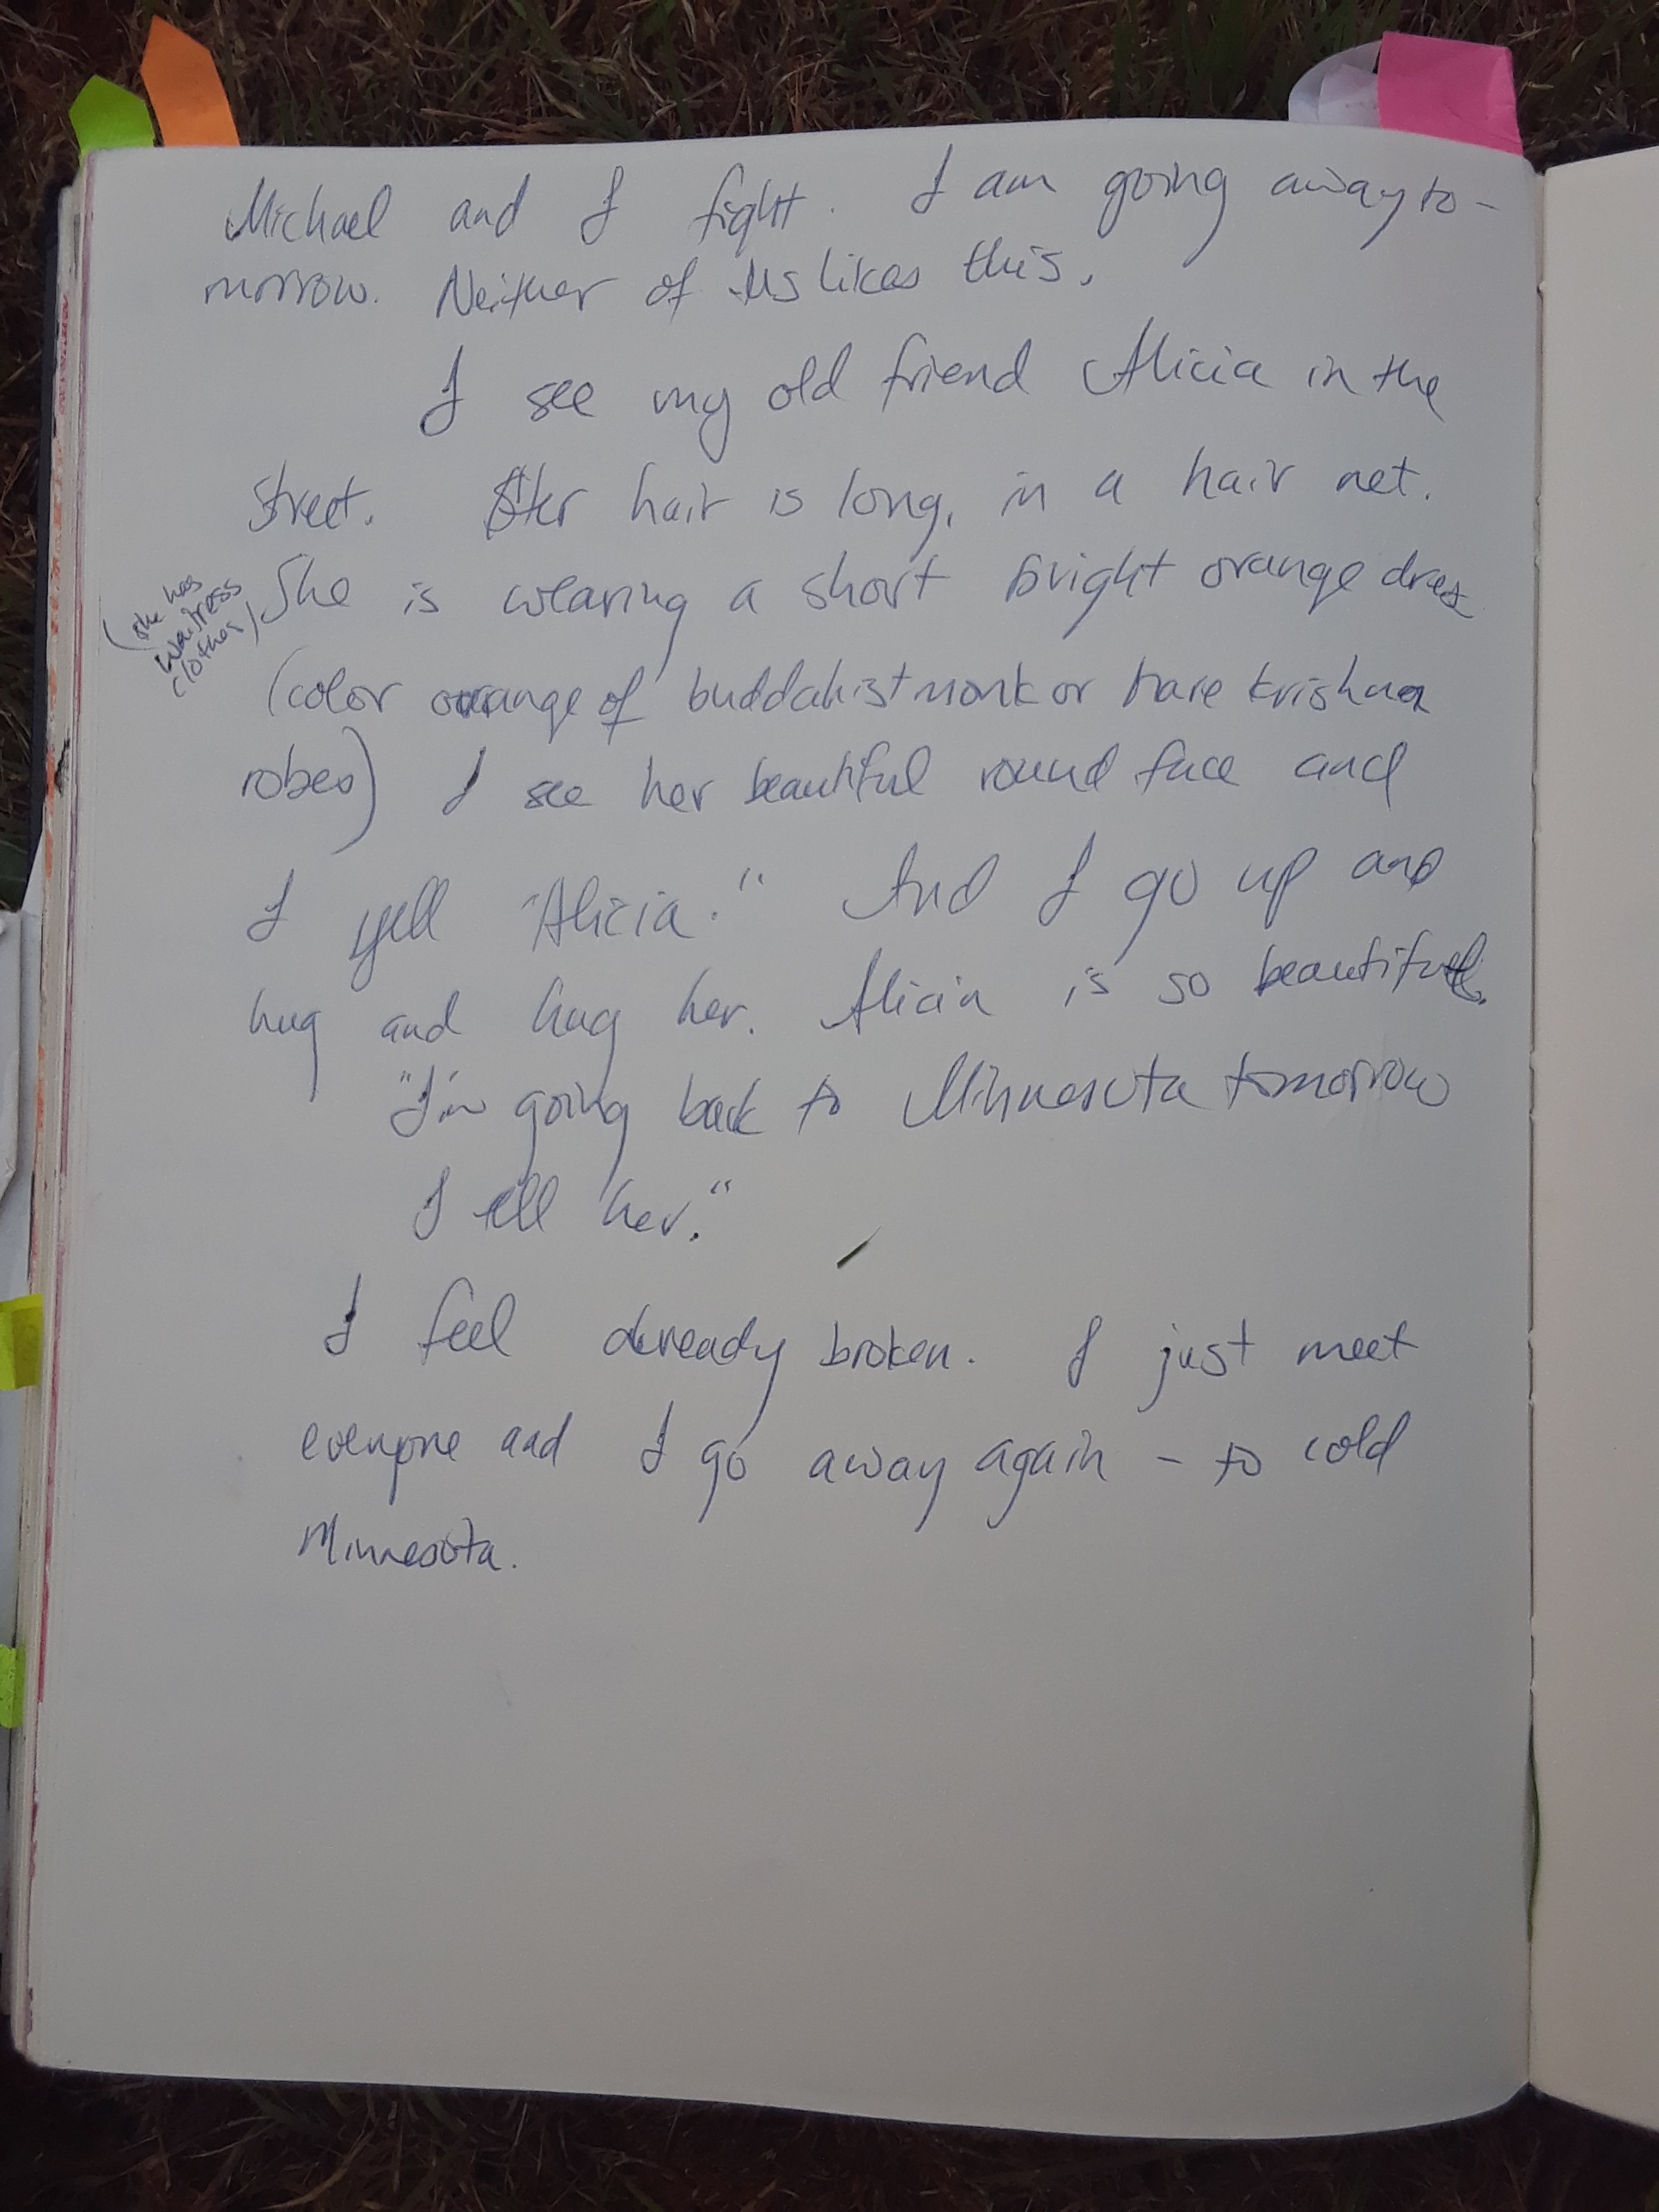 Michael and I fight. I am going away to-
morrow. Neither of us likes this.
I see my old friend Alicia in the
street. Her hair is long, in a hair net.
(she has
waitress
clothes)
She is wearing a short bright orange dress
(color orange of buddahist monk or hare krishna
robes) I see her beautiful round face and
I yell "Alicia." And I go up and
hug and hug her. Alicia is so beautiful.
"I'm going back to Minnesota tomorrow
I tell her."
I feel already broken. I just meet
everyone and I go away again - to cold
Minnesota.